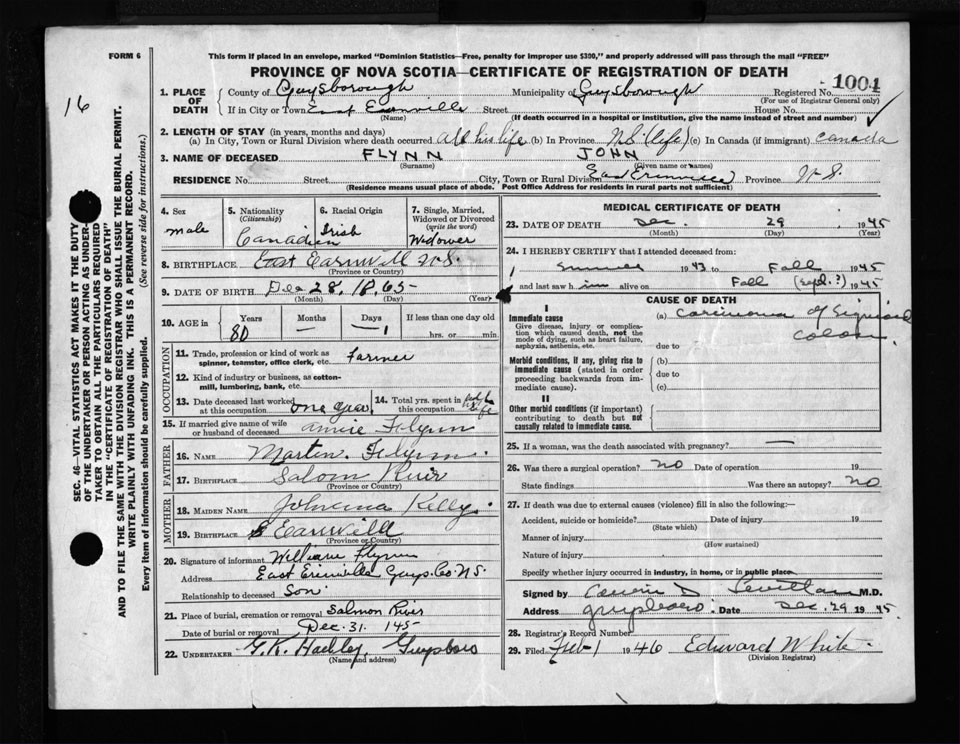 FORM 6
This form if placed in an envelope, marked "Dominion Statistics—Free, penalty for improper use $300," and properly addressed will pass through the mail "FREE"
PROVINCE OF NOVA SCOTIA—CERTIFICATE OF REGISTRATION OF DEATH
16
1. PLACE OF DEATH
County of Guysborough Municipality of Guysborough Registered No. 1004
(For use of Registrar General only)
If in City or Town East Erinville Street House No.
(Name) (If death occurred in a hospital or institution, give the name instead of street and number)
2. LENGTH OF STAY (in years, months and days)
(a) In City, Town or Rural Division where death occurred All his life (b) In Province N.S. (life) (c) In Canada (if immigrant) Canada
3. NAME OF DECEASED FLYNN JOHN
(Surname) (Given name or names)
RESIDENCE No. Street City, Town or Rural Division East Erinville Province N.S.
(Residence means usual place of abode. Post Office Address for residents in rural parts not sufficient)
SEC. 46—VITAL STATISTICS ACT MAKES IT THE DUTY
OF THE UNDERTAKER OR PERSON ACTING AS UNDERTAKER
TO OBTAIN ALL THE PARTICULARS REQUIRED
IN THE "CERTIFICATE OF REGISTRATION OF DEATH"
AND TO FILE THE SAME WITH THE DIVISION REGISTRAR WHO SHALL ISSUE THE BURIAL PERMIT.
WRITE PLAINLY WITH UNFADING INK. THIS IS A PERMANENT RECORD.
Every item of information should be carefully supplied. (See reverse side for instructions.)
4. Sex male
5. Nationality (Citizenship) Canadian
6. Racial Origin Irish
7. Single, Married, Widowed or Divorced (write the word) Widower
8. BIRTHPLACE East Earnvill N.S.
(Province or Country)
9. DATE OF BIRTH Dec 28, 1865
(Month) (Day) (Year)
10. AGE in Years Months Days If less than one day
80 — 1 hrs. or min.
OCCUPATION
11. Trade, profession or kind of work as spinner, teamster, office clerk, etc. Farmer
12. Kind of industry or business, as cotton-mill, lumbering, bank, etc.
13. Date deceased last worked at this occupation one year
14. Total yrs. spent in this occupation life
15. If married give name of wife or husband of deceased Flynn
FATHER
16. NAME Martin Flynn
17. BIRTHPLACE Salom River
(Province or Country)
MOTHER
18. MAIDEN NAME Kelly
19. BIRTHPLACE E Earnvill
(Province or Country)
20. Signature of informant William Flynn
Address East Erinville Guys. Co. N.S.
Relationship to deceased Son
21. Place of burial, cremation or removal Salmon River
Date of burial or removal Dec. 31. 1945
22. UNDERTAKER Guysboro
(Name and address)
MEDICAL CERTIFICATE OF DEATH
23. DATE OF DEATH Dec. 29, 1945
(Month) (Day) (Year)
24. I HEREBY CERTIFY that I attended deceased from
Summer 1943 to Fall 1945
and last saw him alive on Fall (Sept.?) 1945
CAUSE OF DEATH
I
Immediate cause
Give disease, injury or complication which caused death, not the mode of dying, such as heart failure, asphyxia, asthenia, etc.
(a) Carcinoma of Sigmoid Colon.
due to
Morbid conditions, if any, giving rise to immediate cause (stated in order proceeding backwards from immediate cause).
(b)
due to
(c)
II
Other morbid conditions (if important) contributing to death but not causally related to immediate cause.
25. If a woman, was the death associated with pregnancy? —
26. Was there a surgical operation? no Date of operation 19
State findings Was there an autopsy? no
27. If death was due to external causes (violence) fill in also the following:—
Accident, suicide or homicide? Date of injury 19
(State which)
Manner of injury
(How sustained)
Nature of injury
Specify whether injury occurred in industry, in home, or in public place
Signed by M.D.
Address Guysboro. Date Dec. 29 1945
28. Registrar's Record Number
29. Filed Feb 1 1946 Edward White.
(Division Registrar)